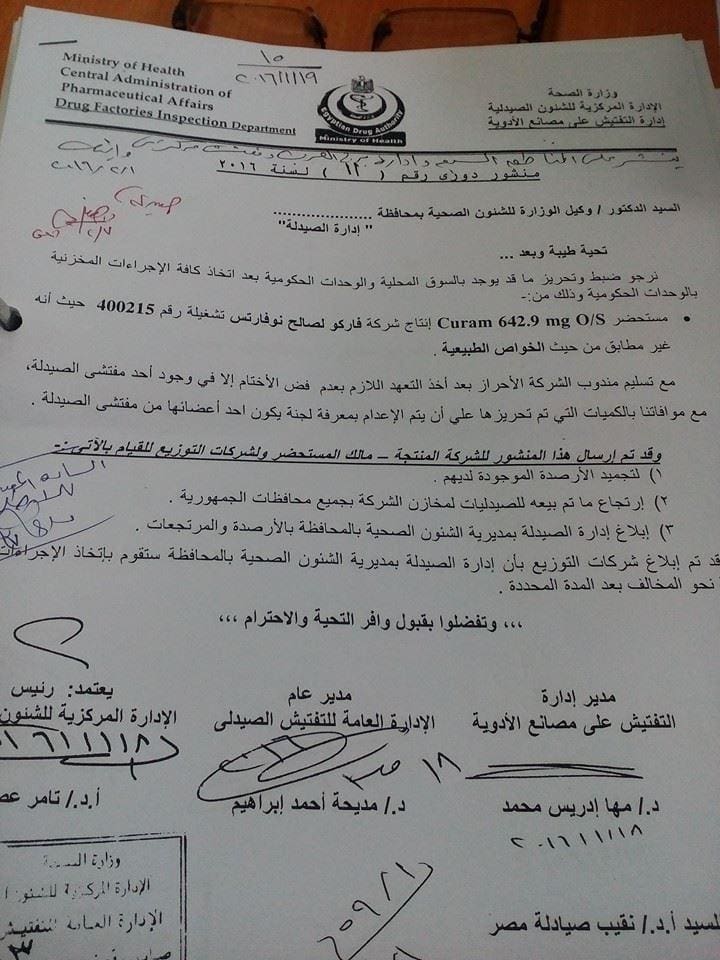 ١٥
٢٠١٦/١/١٩
Ministry of Health
Central Administration of
Pharmaceutical Affairs
Drug Factories Inspection Department
Egyptian Drug Authority
Ministry of Health
وزارة الصحة
الإدارة المركزية للشئون الصيدلية
إدارة التفتيش على مصانع الأدوية
منشور دورى رقم ( ١٢ ) لسنة ٢٠١٦
٢٠١٦/٢/١
السيد الدكتور / وكيل الوزارة للشئون الصحية بمحافظة ..................
" إدارة الصيدلة"
تحية طيبة وبعد ...
نرجو ضبط وتحريز ما قد يوجد بالسوق المحلية والوحدات الحكومية بعد اتخاذ كافة الإجراءات المخزنية
بالوحدات الحكومية وذلك من:-
• مستحضر Curam 642.9 mg O/S إنتاج شركة فاركو لصالح نوفارتس تشغيلة رقم 400215 حيث أنه
غير مطابق من حيث الخواص الطبيعية .
مع تسليم مندوب الشركة الأحراز بعد أخذ التعهد اللازم بعدم فض الأختام إلا في وجود أحد مفتشى الصيدلة،
مع موافاتنا بالكميات التي تم تحريزها علي أن يتم الإعدام بمعرفة لجنة يكون احد أعضائها من مفتشى الصيدلة .
وقد تم إرسال هذا المنشور للشركة المنتجة – مالك المستحضر ولشركات التوزيع للقيام بالآتى :-
١) لتجميد الأرصدة الموجودة لديهم .
٢) إرتجاع ما تم بيعه للصيدليات لمخازن الشركة بجميع محافظات الجمهورية .
٣) إبلاغ إدارة الصيدلة بمديرية الشئون الصحية بالمحافظة بالأرصدة والمرتجعات .
قد تم إبلاغ شركات التوزيع بأن إدارة الصيدلة بمديرية الشئون الصحية بالمحافظة ستقوم بإتخاذ الإجراءات
نحو المخالف بعد المدة المحددة .
،،، وتفضلوا بقبول وافر التحية والاحترام ،،،
مدير إدارة
التفتيش على مصانع الأدوية
د./ مها إدريس محمد
٢٠١٦/١/١٨
مدير عام
الإدارة العامة للتفتيش الصيدلى
١٨
د./ مديحة أحمد إبراهيم
يعتمد: رئيس
الإدارة المركزية للشئون
أ.د./ تامر
وزارة الصحة
الإدارة المركزية للشئون
الإدارة العامة للتفتيش
للسيد أ.د./ نقيب صيادلة مصر